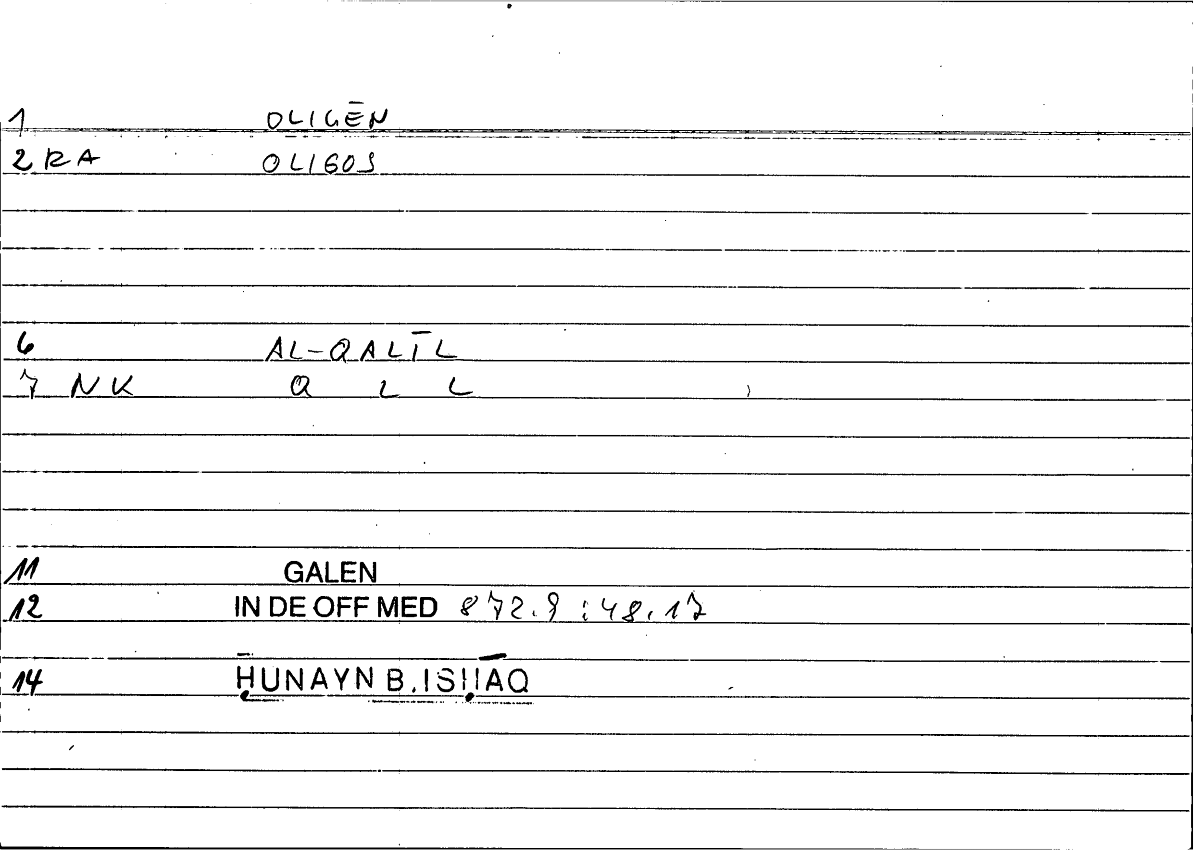 1 OLIGĒN
2 RA OLIGOS
6 AL-QALĪL
7 NK Q L L
11 GALEN
12 IN DE OFF MED 872.9 : 48.17
14 ḤUNAYN B. ISḤĀQ